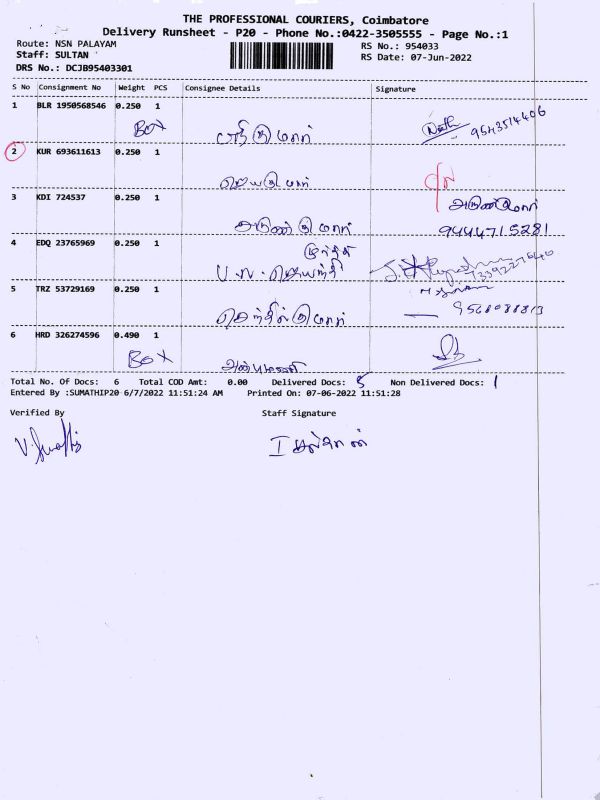 THE PROFESSIONAL COURIERS, Coimbatore
Delivery Runsheet - P20 - Phone No.:0422-3505555 - Page No.:1
Route: NSN PALAYAM RS No.: 954033
Staff: SULTAN RS Date: 07-Jun-2022
DRS No.: DCJB95403301
S No Consignment No Weight PCS Consignee Details Signature
1 BLR 1950568546 0.250 1
BOX 9543514406
2 KUR 693611613 0.250 1
ஜெயகுமார்
3 KDI 724537 0.250 1 அருண்குமார்
அருண் குமார் 9444715281
4 EDQ 23765969 0.250 1
5 TRZ 53729169 0.250 1
செந்தில்குமார்
6 HRD 326274596 0.490 1
BOX அன்புமணி
Total No. Of Docs: 6 Total COD Amt: 0.00 Delivered Docs: 5 Non Delivered Docs: 1
Entered By :SUMATHIP20 6/7/2022 11:51:24 AM Printed On: 07-06-2022 11:51:28
Verified By Staff Signature